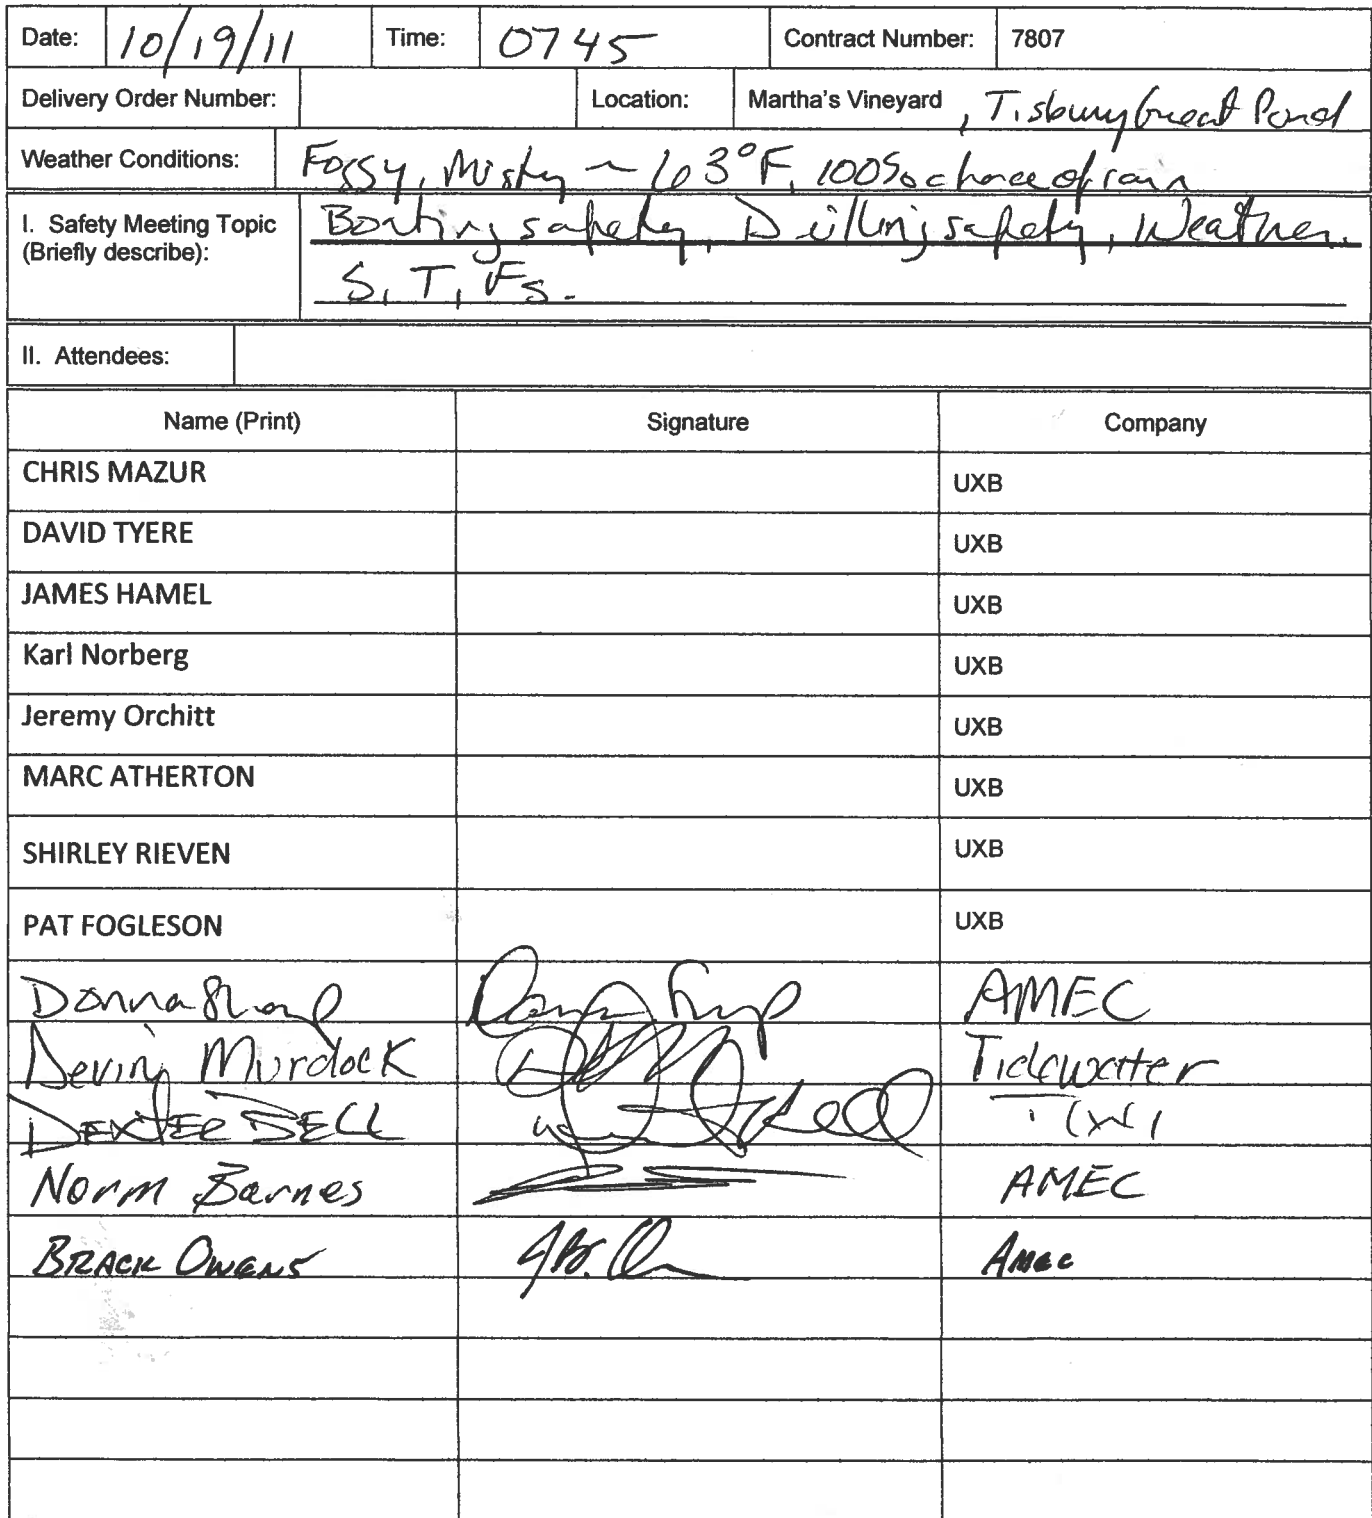 Date: 10/19/11 Time: 0745 Contract Number: 7807
Delivery Order Number: Location: Martha's Vineyard, Tisbury Great Pond
Weather Conditions: Foggy, Misty ~ 63°F, 100% chance of rain
I. Safety Meeting Topic Boating safety, Drilling safety, Weather.
(Briefly describe): S, T, Fs.
II. Attendees:
Name (Print) Signature Company
CHRIS MAZUR UXB
DAVID TYERE UXB
JAMES HAMEL UXB
Karl Norberg UXB
Jeremy Orchitt UXB
MARC ATHERTON UXB
SHIRLEY RIEVEN UXB
PAT FOGLESON UXB
Donna Sharp AMEC
Devin Murdock Tidewater
DEXTER BELL
Norm Barnes AMEC
BRACK OWENS AMEC